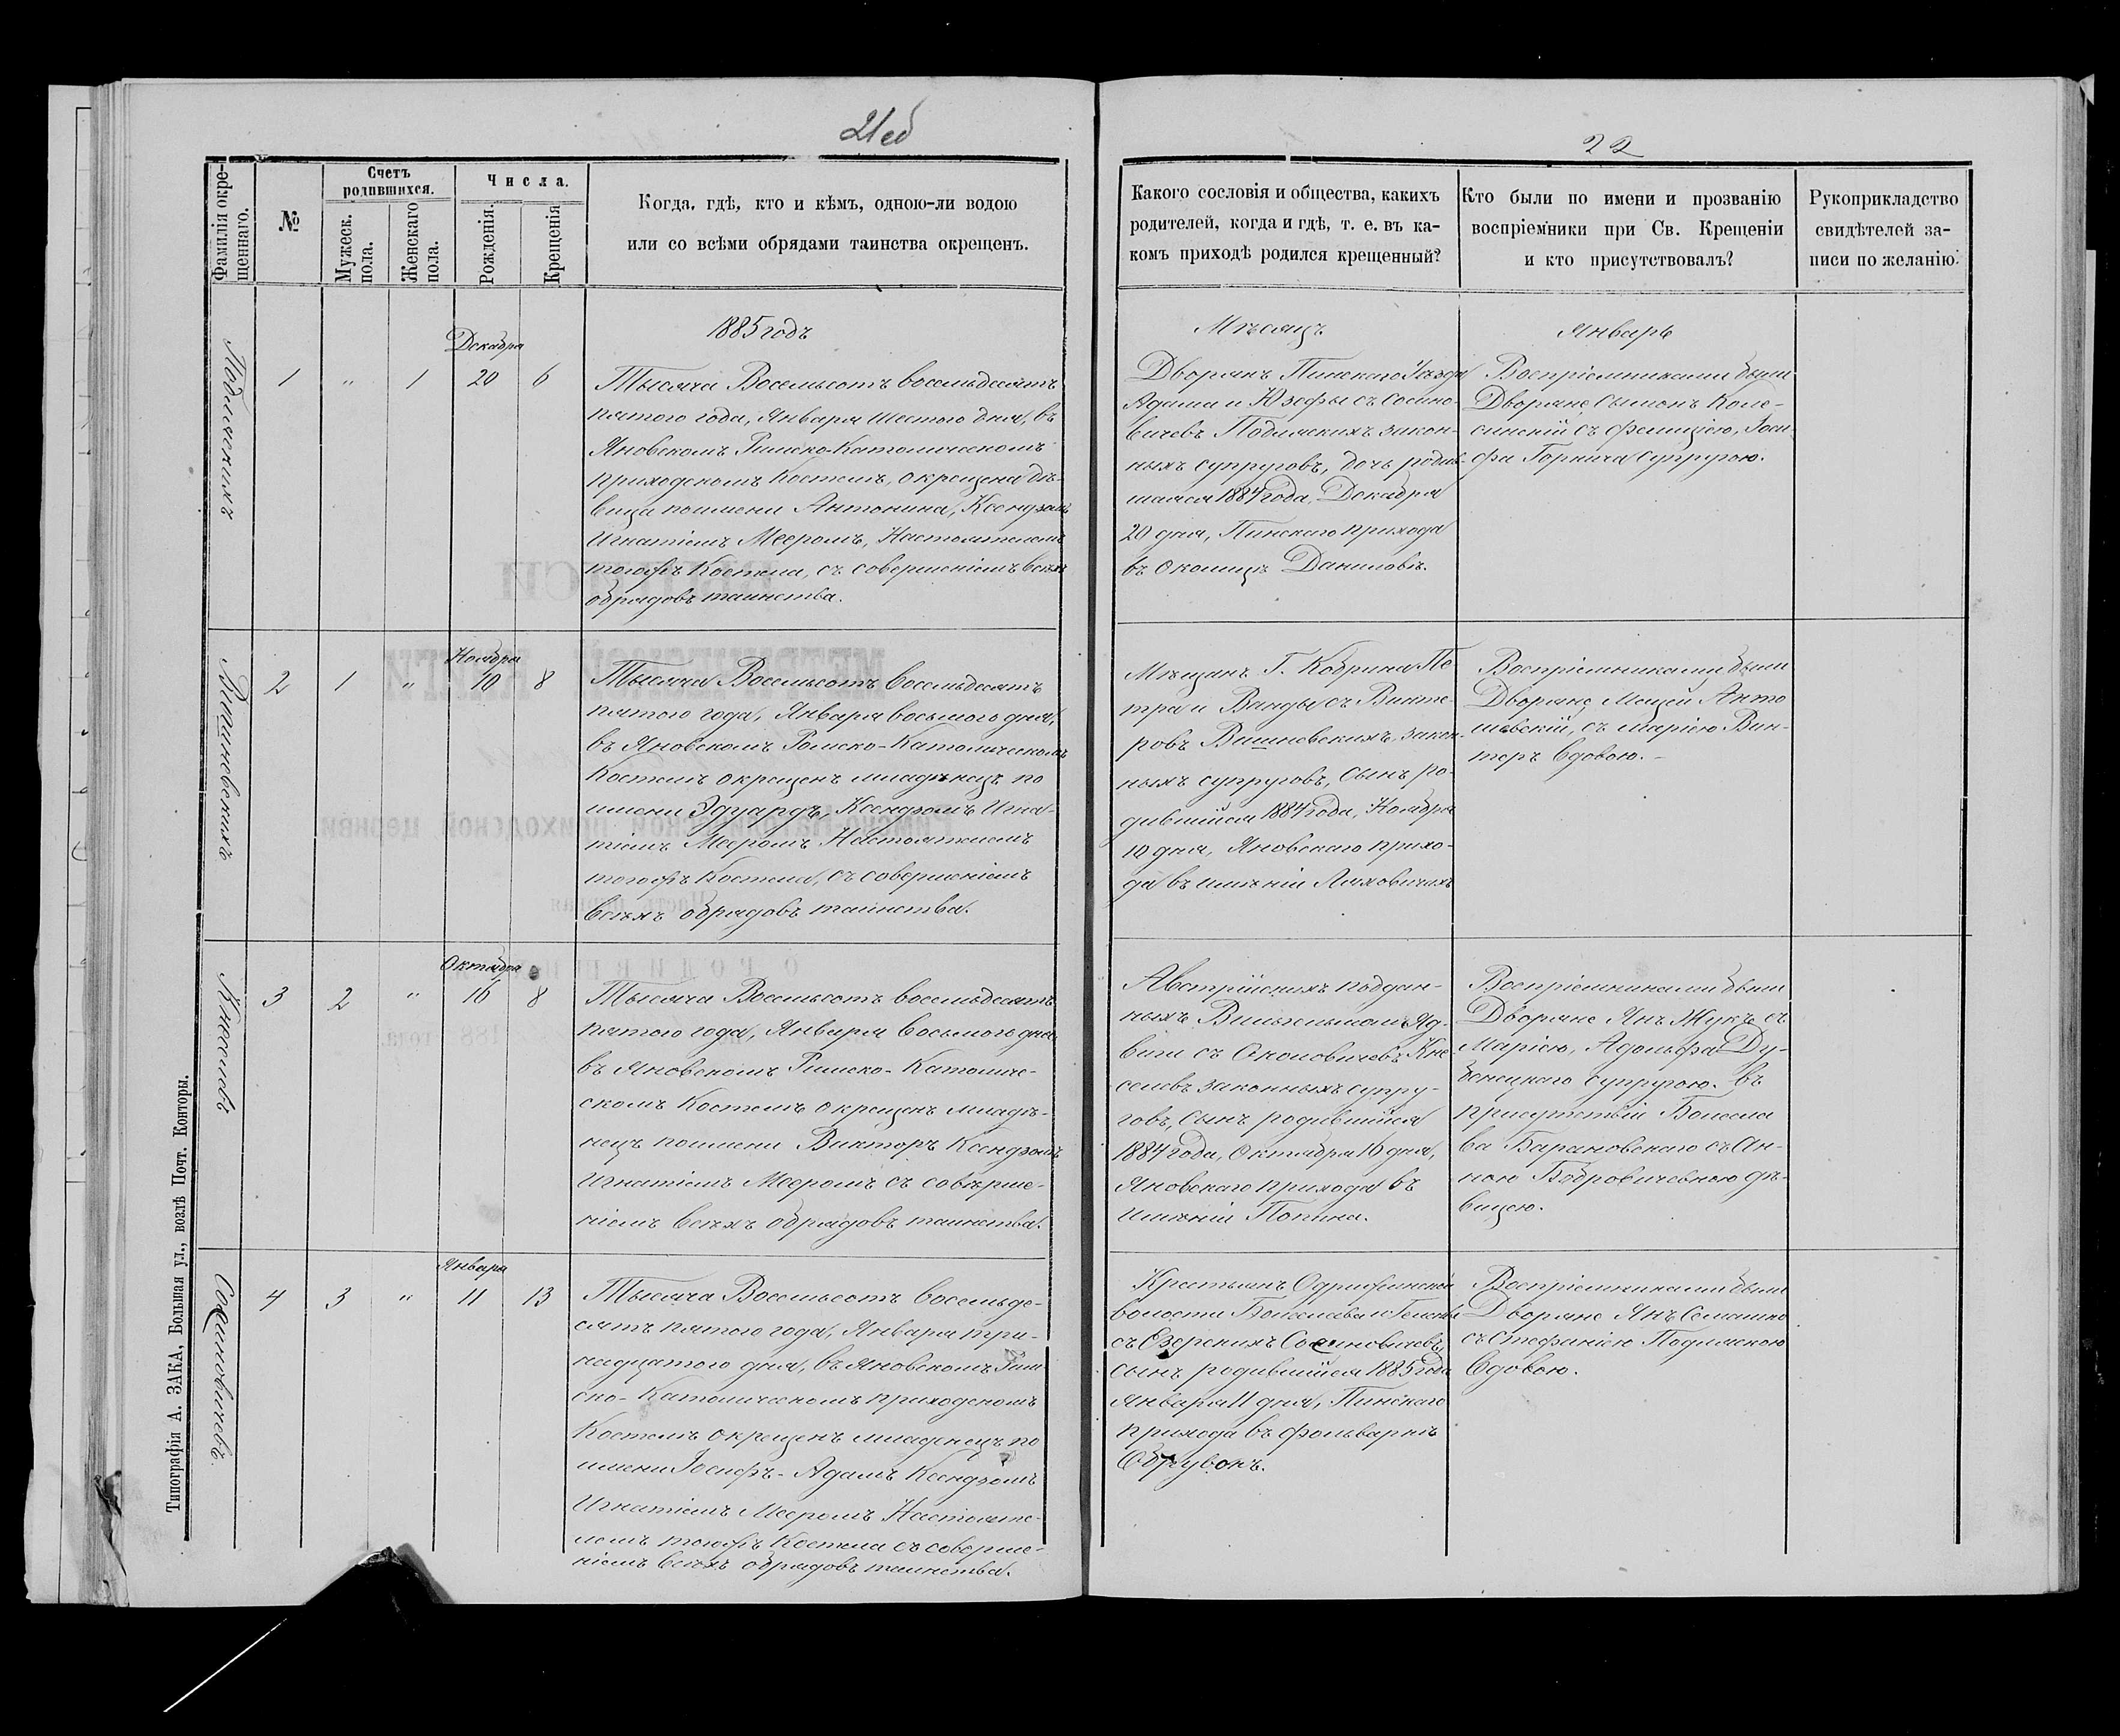 21об
Фамилія окре-
щеннаго.
№
Счетъ
родившихся.
Мужеск.
пола.
Женскаго
пола.
Числа.
Рожденія.
Крещенія
Когда, гдѣ, кто и кѣмъ, одною-ли водою
или со всѣми обрядами таинства окрещенъ.
1885 годъ
Подлясскихъ
1
"
1
Декабря
20
6
Тысяча Восемьсотъ восемьдесятъ
пятого года, Января Шестого дня, въ
Яновскомъ Римско-Католическомъ
приходскомъ Костелѣ, окрещена дѣ-
вица по имени Антонина, Ксендзомъ
Игнатіемъ Мееромъ, Настоятелемъ
тогожъ Костела, съ совершеніемъ всѣхъ
обрядовъ таинства.
Вишневскихъ
2
1
"
Ноября
10
8
Тысяча Восемьсотъ восемьдесятъ
пятого года, Января восьмого дня,
въ Яновскомъ Римско-Католическомъ
Костелѣ окрещенъ младѣнецъ по
имени Эдуардъ, Ксендзомъ Игна-
тіемъ Мееромъ Настоятелемъ
тогожъ Костела, съ совершеніемъ
всѣхъ обрядовъ таинства.
Кнеселевъ
3
2
"
Октября
16
8
Тысяча Восемьсотъ восемьдесятъ
пятого года, Января восьмого дня
въ Яновскомъ Римско-Католиче-
скомъ Костелѣ окрещенъ младѣ-
нецъ по имени Викторъ Ксендзомъ
Игнатіемъ Мееромъ съ совѣрше-
ніемъ всѣхъ обрядовъ таинства.
4
3
"
Января
11
13
Тысяча Восемьсотъ восемьде-
сятъ пятого года, Января три-
надцатого дня, въ Яновскомъ Рим
ско-Католическомъ приходскомъ
Костелѣ окрещенъ младенецъ по
имени Іосифъ-Адамъ Ксендзомъ
Игнатіемъ Мееромъ Настояте-
лемъ тогожъ Костела съ соверше-
ніемъ всѣхъ обрядовъ таинства.
Типографія А. ЗАКА, Большая ул., возлѣ Почт. Конторы.
22
Какого сословія и общества, какихъ
родителей, когда и гдѣ, т. е. въ ка-
комъ приходѣ родился крещенный?
Кто были по имени и прозванію
воспріемники при Св. Крещеніи
и кто присутствовалъ?
Рукоприкладство
свидѣтелей за-
писи по желанію.
Мѣсяцъ
Январь
Дворянъ Пинскаго Уѣзда
Адама и Юзефы съ Сосино-
вичевъ Подлясскихъ закон-
ныхъ супруговъ, дочь родив-
шаяся 1884 года, Декабря
20 дня, Пинскаго прихода
въ Околицѣ
Воспріемниками были
Дворяне Сымонъ
съ Фелиціею, Іоси-
фа Горнича супругою.
Мѣщанъ Г. Кобрина Пе
тра и Ванды съ Винте-
ровъ Вишневскихъ закон-
ныхъ супруговъ, Сынъ ро-
дившійся 1884 года, Ноября
10 дня, Яновскаго прихо-
да въ имѣніи Ляховичахъ
Воспріемниками были
Дворяне Анто
шевскій, съ Маріею Вин-
теръ вдовою.
Австрійскихъ поддан-
ныхъ Вильгельма и Яд-
виги съ Кне-
селевъ законныхъ супру-
говъ, сынъ родившійся
1884 года, Октября 16 дня,
Яновскаго прихода въ
Имѣніи Попина.
Воспріемниками были
Дворяне Янъ Жукъ съ
Маріею, Адольфа Ду-
бенецкаго супругою. въ
присутствіи Болесла
ва Барановскаго съ Ан-
ною Бобровичевною дѣ-
вицею.
Крестьянъ
волости Болеслава и Гелены
съ Озерскихъ
сынъ родившійся 1885 года
Января 11 дня, Пинскаго
прихода въ фольваркѣ
Воспріемниками были
Дворяне Янъ Семашко
съ Стефаніею Подлясскою
вдовою.